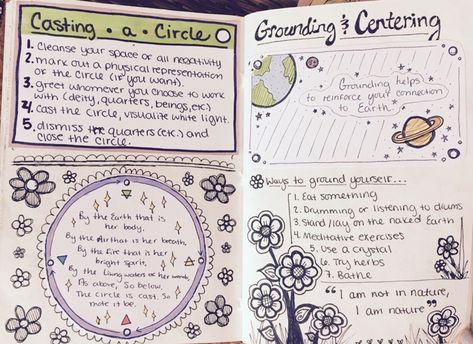 Casting • a • Circle
1. Cleanse your space of all negativity
2. mark out a physical representation
of the Circle (if you want).
3. greet whomever you choose to work
with (deity, quarters, beings, etc.)
4. cast the circle, visualize white light.
5. dismiss the quarters (etc.) and
close the circle.
By the Earth that is
her body,
By the air that is her breath,
By the fire that is her
bright spirit,
By the living waters of her womb,
As above, So below,
The Circle is cast, So
mote it be.
Grounding & Centering
Grounding helps
to reinforce your connection
to Earth.
Ways to ground yourself...
1. Eat something
2. Drumming or listening to drums
3. Stand/lay on the naked Earth
4. Meditative exercises
5. Use a crystal
6. Try herbs
7. Bathe
"I am not in nature,
I am nature"